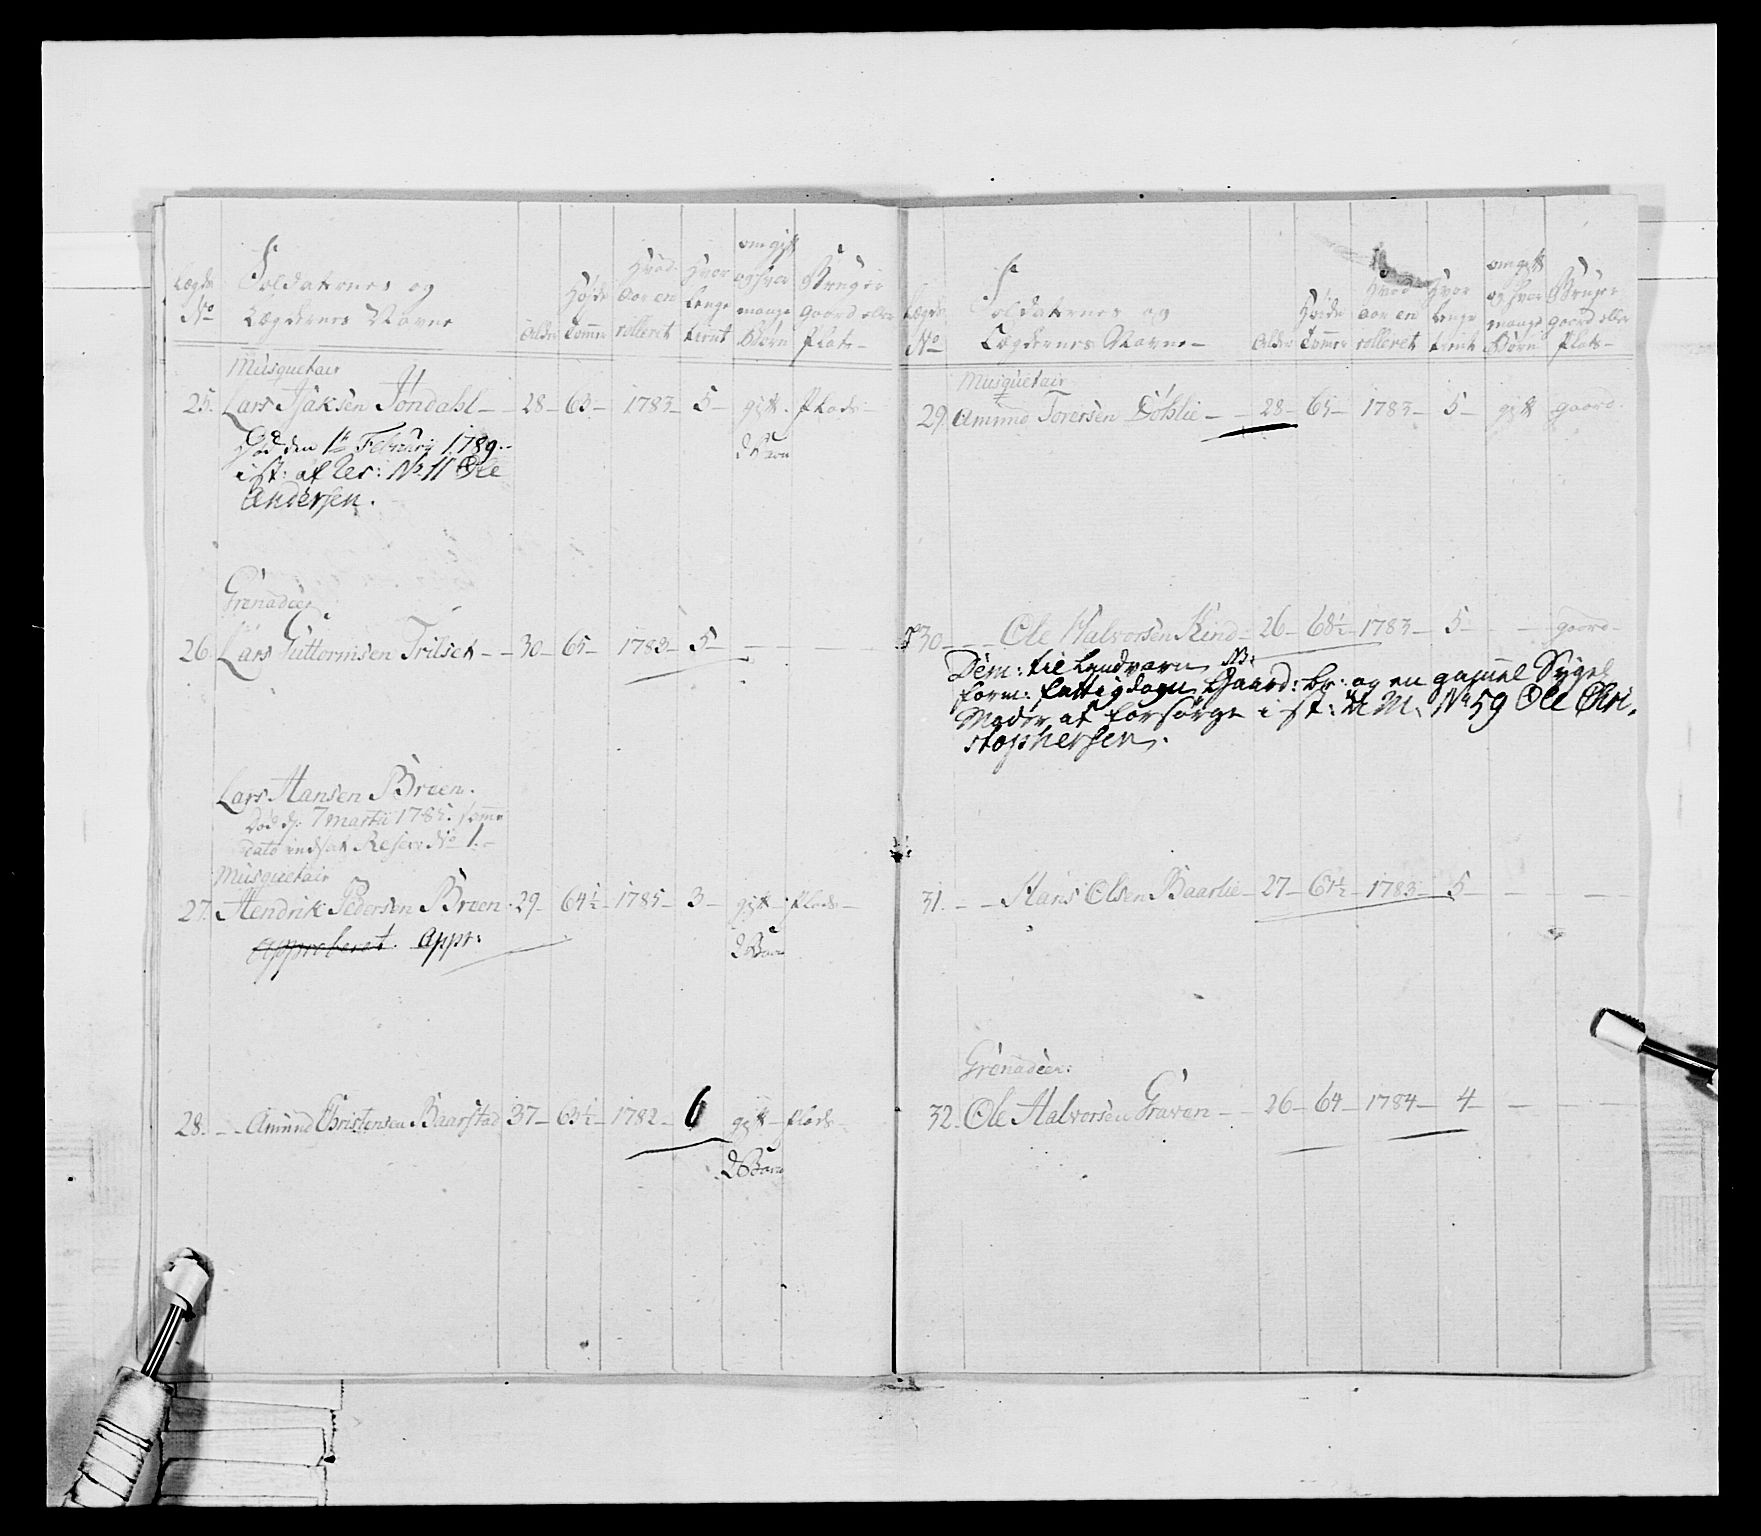 Lægds No
Soldaternes og Lægdernes Navne
Alder
Høyde Tommer
Hvad aar en rolleret
Hvor lenge tient
om gift og hvor mange Børn
Bruger gaard eller Plads
Musquetair
25. Lars Isaksen Jondahl - 28 - 63 - 1783 - 5 - gift - Plads -
2 Børn
Død den 1te Februarij 1789.
i st: af Res: No 11 Ole
Andersen.
Grenadeer
26. Lars Guttormsen Trilset - - 30 - 65 - 1783 - 5 - - -
Lars Hansen Breen.
Død d: 7 Martii 1785. samme
dato indsat Reserv No 1. -
Musquetair
27. Hendrik Pedersen Breen - 29 - 64½ - 1785 - 3 - gift - Plads -
2 Børn
Approberet. Appr:
28. - - Amund Christensen Baarstad 37 - 63½ - 1782 - 6 gift - Plads -
2 Børn
Lægds No
Soldaternes og Lægdernes Navne -
Alder
Høide Tommer
Hvad aar en rolleret
Hvor lenge tient
om gift og hvor mange Børn
Bruger gaard eller Plads -
Musquetair
29. Amund Toresen - - 28 - 65 - 1783 - 5 - gift gaard -
30 - - Ole Halvorsen Kind - 26 - 68½ - 1783 - 5 - - gaard -
Dem: til Landværn
form: fattigdom, Gaard: br: og en gammel Sygel
Moder at forsørge i st: No 59 Ole Chri-
stophersen.
31. - - Hans Olsen Baarlie - 27 - 63½ - 1783 - 5 - - -
Grenadeer:
32. Ole Halvorsen Graven - - 26 - 64 - 1784 - 4 - - -